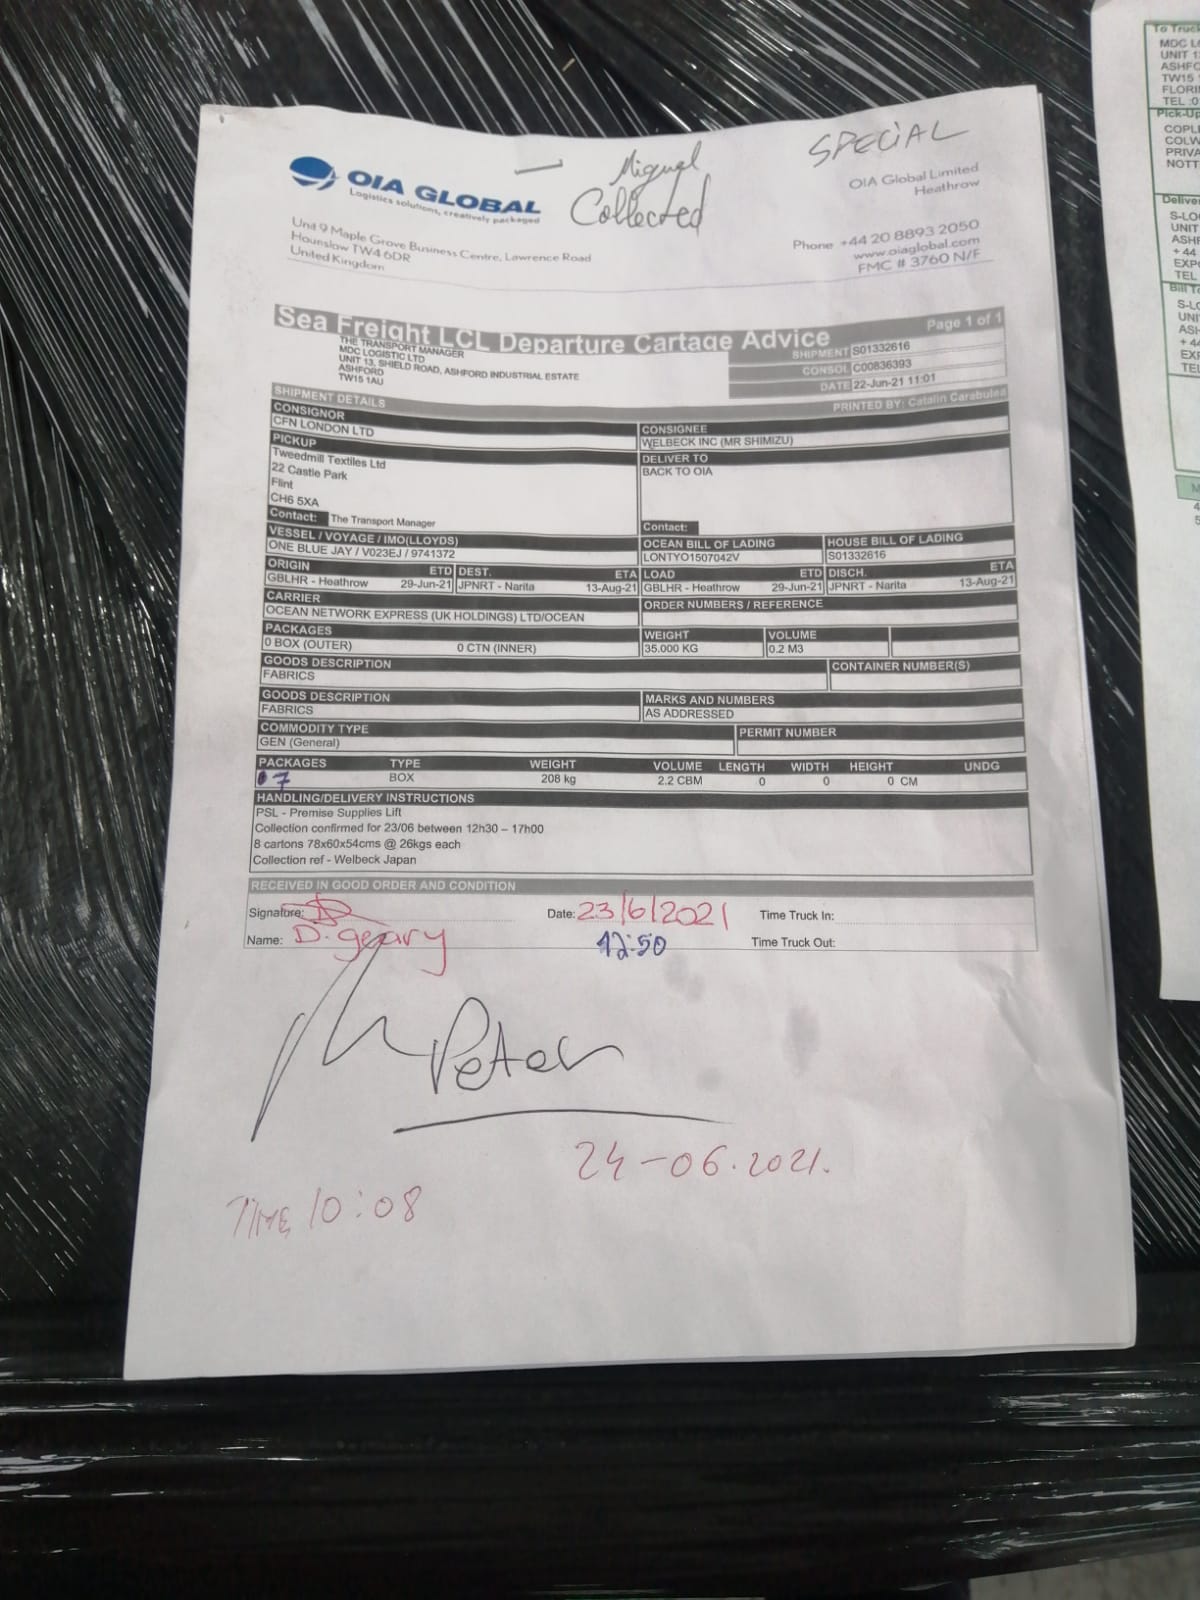 OIA GLOBAL
Logistics solutions, creatively packaged
Miguel
Collected
SPECIAL
OIA Global Limited
Heathrow
Unit 9 Maple Grove Business Centre, Lawrence Road
Hounslow TW4 6DR
United Kingdom
Phone +44 20 8893 2050
www.oiaglobal.com
FMC # 3760 N/F
Sea Freight LCL Departure Cartage Advice
Page 1 of 1
THE TRANSPORT MANAGER
MDC LOGISTIC LTD
UNIT 13, SHIELD ROAD, ASHFORD INDUSTRIAL ESTATE
ASHFORD
TW15 1AU
SHIPMENT S01332616
CONSOL C00836393
DATE 22-Jun-21 11:01
SHIPMENT DETAILS PRINTED BY: Catalin Carabulea
CONSIGNOR
CFN LONDON LTD
CONSIGNEE
WELBECK INC (MR SHIMIZU)
PICKUP
Tweedmill Textiles Ltd
22 Castle Park
Flint
CH6 5XA
Contact: The Transport Manager
DELIVER TO
BACK TO OIA
Contact:
VESSEL / VOYAGE / IMO(LLOYDS)
ONE BLUE JAY / V023EJ / 9741372
OCEAN BILL OF LADING
LONTYO1507042V
HOUSE BILL OF LADING
S01332616
ORIGIN ETD DEST. ETA LOAD ETD DISCH. ETA
GBLHR - Heathrow 29-Jun-21 JPNRT - Narita 13-Aug-21 GBLHR - Heathrow 29-Jun-21 JPNRT - Narita 13-Aug-21
CARRIER
OCEAN NETWORK EXPRESS (UK HOLDINGS) LTD/OCEAN
ORDER NUMBERS / REFERENCE
PACKAGES WEIGHT VOLUME
0 BOX (OUTER) 0 CTN (INNER) 35.000 KG 0.2 M3
GOODS DESCRIPTION
FABRICS
CONTAINER NUMBER(S)
GOODS DESCRIPTION
FABRICS
MARKS AND NUMBERS
AS ADDRESSED
COMMODITY TYPE
GEN (General)
PERMIT NUMBER
PACKAGES TYPE WEIGHT VOLUME LENGTH WIDTH HEIGHT UNDG
7 BOX 208 kg 2.2 CBM 0 0 0 CM
HANDLING/DELIVERY INSTRUCTIONS
PSL - Premise Supplies Lift
Collection confirmed for 23/06 between 12h30 – 17h00
8 cartons 78x60x54cms @ 26kgs each
Collection ref - Welbeck Japan
RECEIVED IN GOOD ORDER AND CONDITION
Signature: Date: 23/6/2021 Time Truck In:
Name: D. geary 12:50 Time Truck Out:
Peter
24-06.2021.
TIME 10:08
To Truck
MDC
UNIT
TW15
TEL
Pick-Up
Bill To
TEL